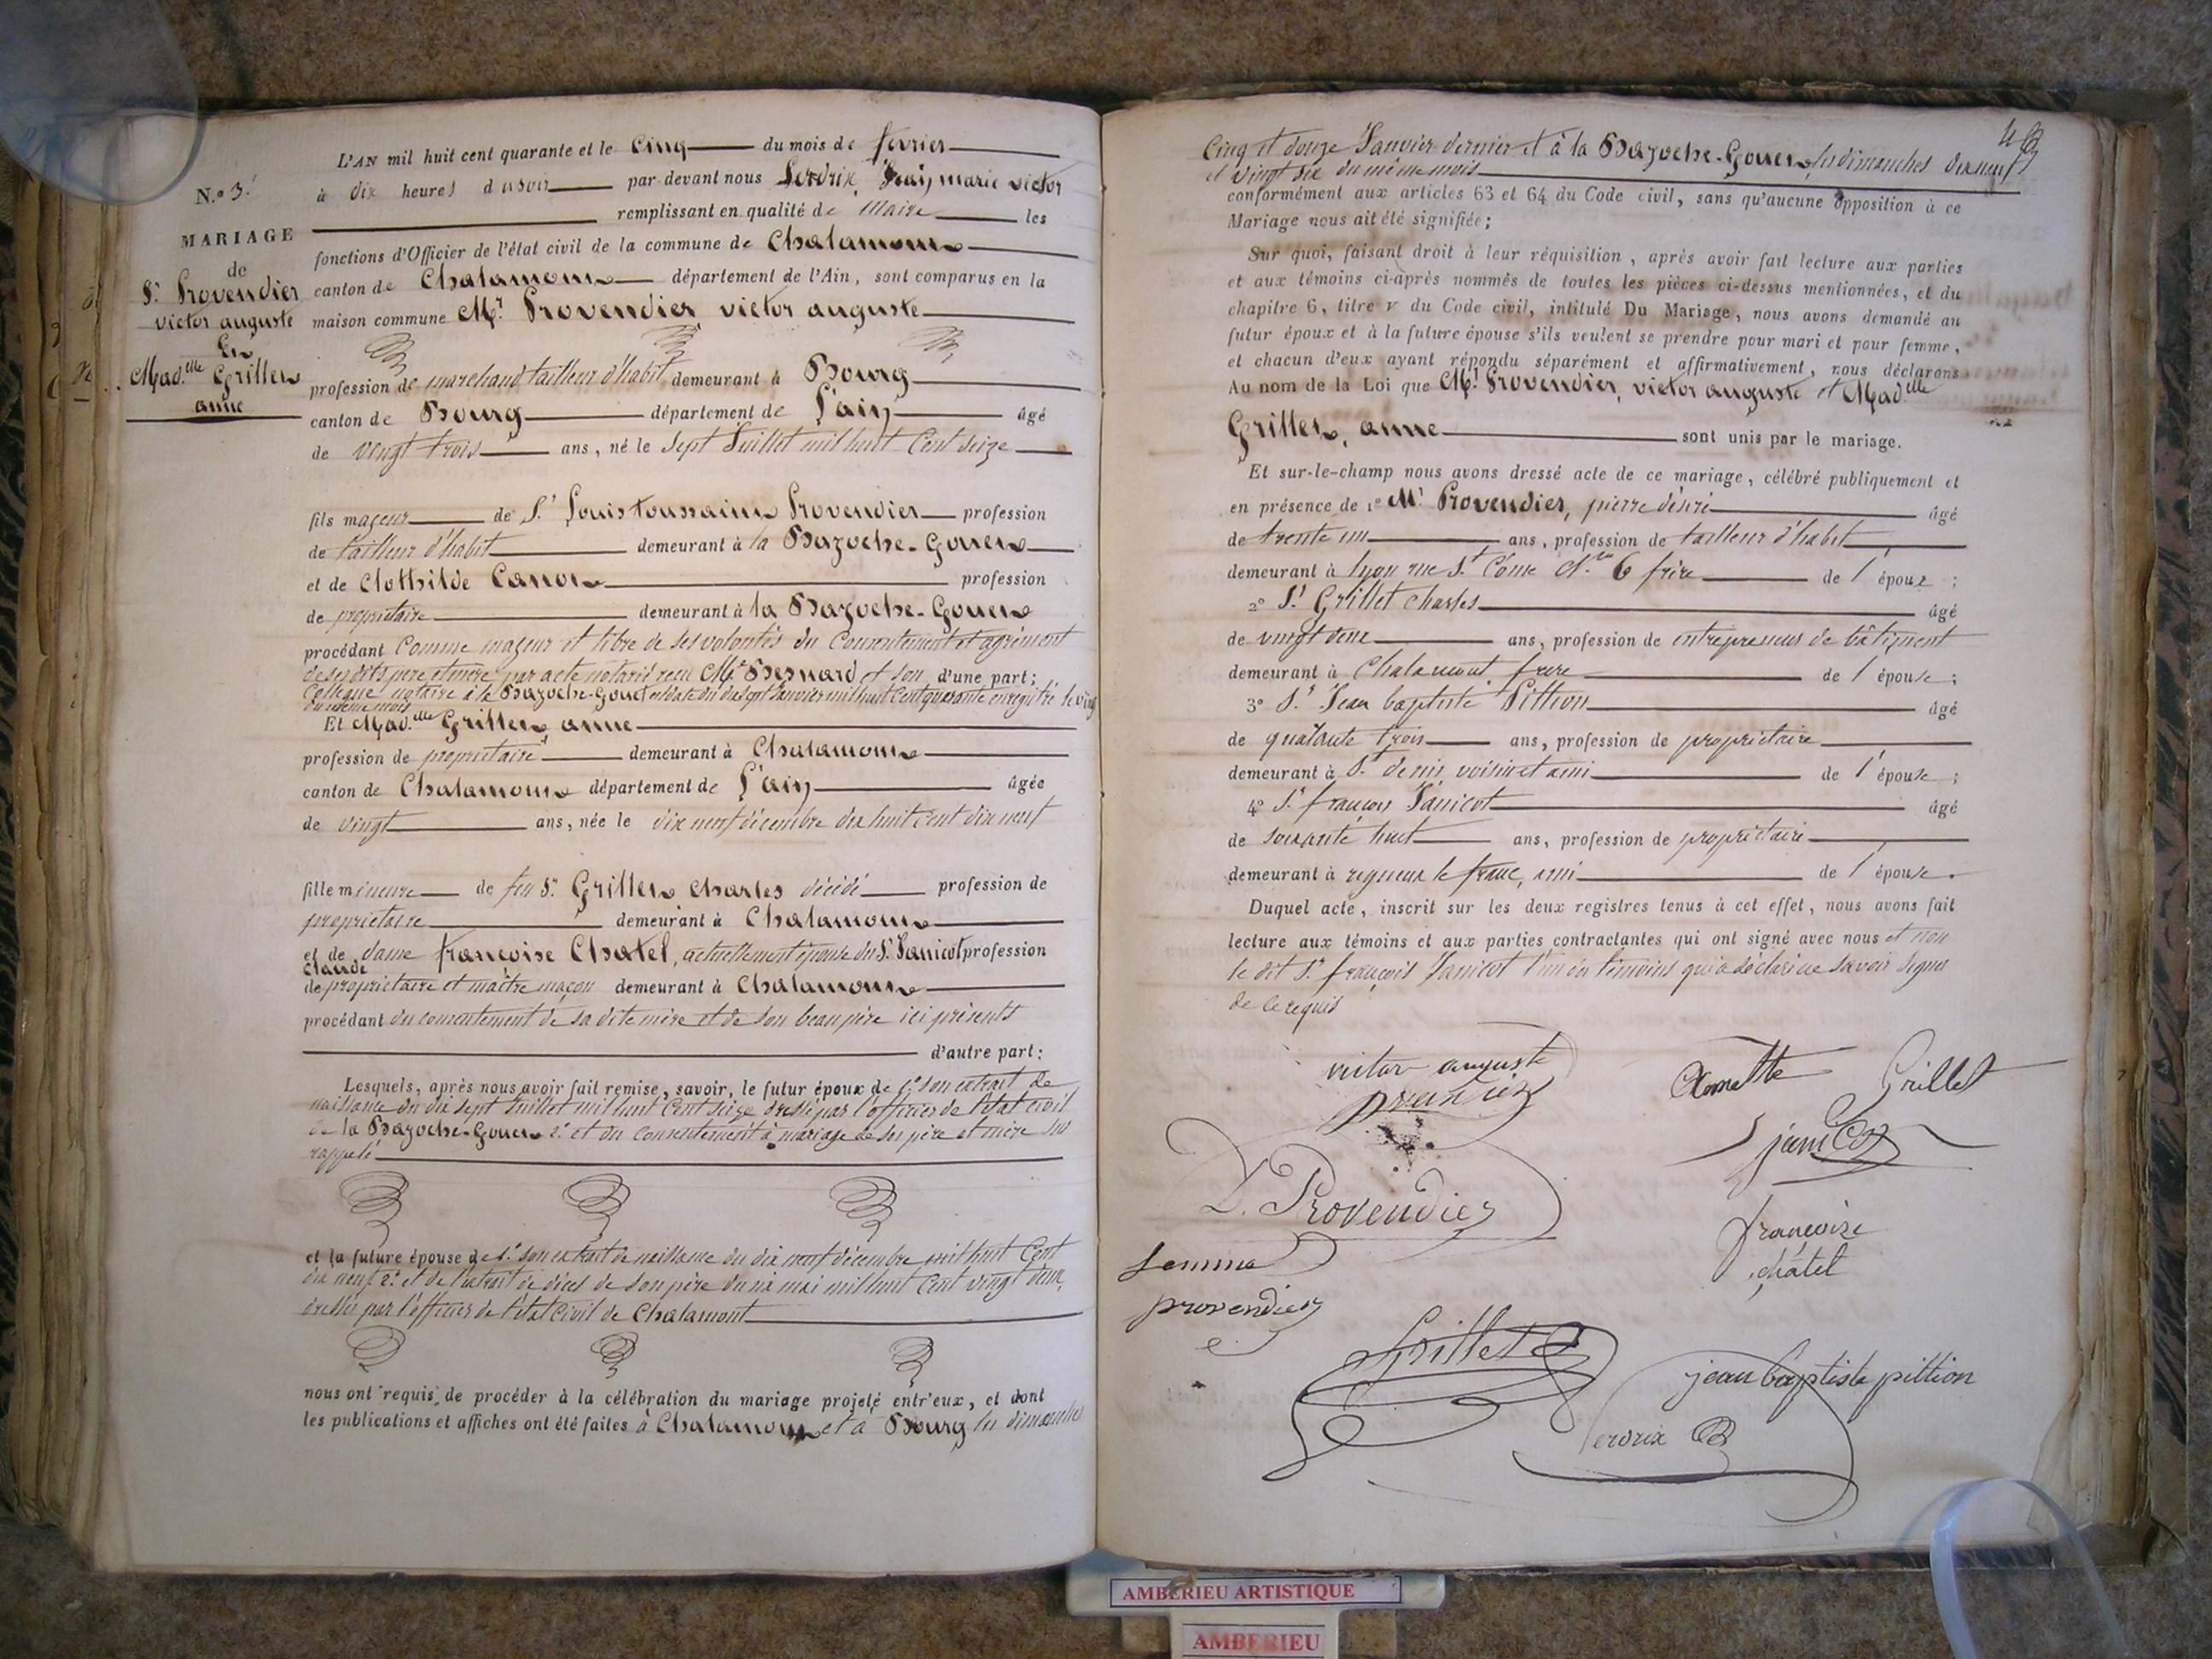 N.º 3.
MARIAGE
de
Sr. Provendier
victor auguste
Et
Mad.elle Grillet
anne
L'AN mil huit cent quarante et le Cinq du mois de février
à dix heures du soir par-devant nous marie victor
remplissant en qualité de Maire les
fonctions d'Officier de l'état civil de la commune de Chalamont
canton de Chalamont département de l'Ain, sont comparus en la
maison commune Mr. Provendier victor auguste
profession de marchand tailleur d'habit demeurant à Bourg
canton de Bourg département de L'ain âgé
de vingt trois ans, né le Sept Juillet mil huit Cent Seize
fils majeur de Sr. Louis toussaint Provendier profession
de tailleur d'habit demeurant à la Bazoche-Gouet
et de Clothilde Canot profession
de propriétaire demeurant à la Bazoche-Gouet
procédant Comme majeur et libre de ses volontés du Consentement et agrément
de ses dits père et mère par acte notarié reçu Me Besnard et son d'une part;
Collègue notaire à la Bazoche-Gouet en date du dix sept Janvier mil huit Cent quarante enregistré le vingt
du même mois
Et Mad.elle Grillet anne
profession de propriétaire demeurant à Chalamont
canton de Chalamont département de L'ain âgée
de vingt ans, née le dix neuf décembre dix huit cent dix neuf
fille mineure de feu Sr. Grillet Charles décédé profession de
propriétaire demeurant à Chalamont
et de dame françoise Chatel, actuellement épouse du Sr. Janicot profession
Claude
de propriétaire et maître maçon demeurant à Chalamont
procédant du consentement de sa dite mère et de son beau père ici présents
d'autre part:
Lesquels, après nous avoir fait remise, savoir, le futur époux de 1º son extrait de
naissance du dix sept Juillet mil huit Cent Seize dressé par l'officier de l'état civil
de la Bazoche-Gouet 2º et du Consentement à mariage de ses père et mère sus
rappelé
et la future épouse de 1º son extrait de naissance du dix neuf décembre mil huit Cent
dix neuf 2º et de l'extrait de décès de son père du mai mil huit Cent vingt deux,
dressés par l'officier de l'état Civil de Chalamont
nous ont requis de procéder à la célébration du mariage projeté entr'eux, et dont
les publications et affiches ont été faites à Chalamont et à Bourg les dimanches
Cinq et douze Janvier dernier et à la Bazoche-Gouet, les dimanches dix neuf
et vingt six du même mois
conformément aux articles 63 et 64 du Code civil, sans qu'aucune opposition à ce
Mariage nous ait été signifiée;
Sur quoi, faisant droit à leur réquisition, après avoir fait lecture aux parties
et aux témoins ci-après nommés de toutes les pièces ci-dessus mentionnées, et du
chapitre 6, titre v du Code civil, intitulé Du Mariage, nous avons demandé au
futur époux et à la future épouse s'ils veulent se prendre pour mari et pour femme,
et chacun d'eux ayant répondu séparément et affirmativement, nous déclarons
Au nom de la Loi que Mr. Provendier, victor auguste et Mad.elle
Grillet, anne sont unis par le mariage.
Et sur-le-champ nous avons dressé acte de ce mariage, célébré publiquement et
en présence de 1º Mr Provendier, pierre désiré âgé
de trente un ans, profession de tailleur d'habit
demeurant à lyon rue St Côme N.ro 6 frère de l'époux;
2º Sr Grillet Charles âgé
de vingt deux ans, profession de entrepreneur de bâtiment
demeurant à Chalamont frère de l'épouse;
3º Sr. Jean baptiste Pittion âgé
de quarante trois ans, profession de propriétaire
demeurant à St denis, voisin et ami de l'épouse;
4º Sr françois Janicot âgé
de soixante huit ans, profession de propriétaire
demeurant à rigneux le franc, ami de l'épouse.
Duquel acte, inscrit sur les deux registres tenus à cet effet, nous avons fait
lecture aux témoins et aux parties contractantes qui ont signé avec nous et non
le dit Sr. françois Janicot l'un des témoins qui a déclaré ne savoir signer
de ce requis
victor auguste
Annette Grillet
janicot
D. Provendier
françoise
châtel
femme
provendier
Grillet
jean baptiste pittion
AMBERIEU ARTISTIQUE
AMBERIEU